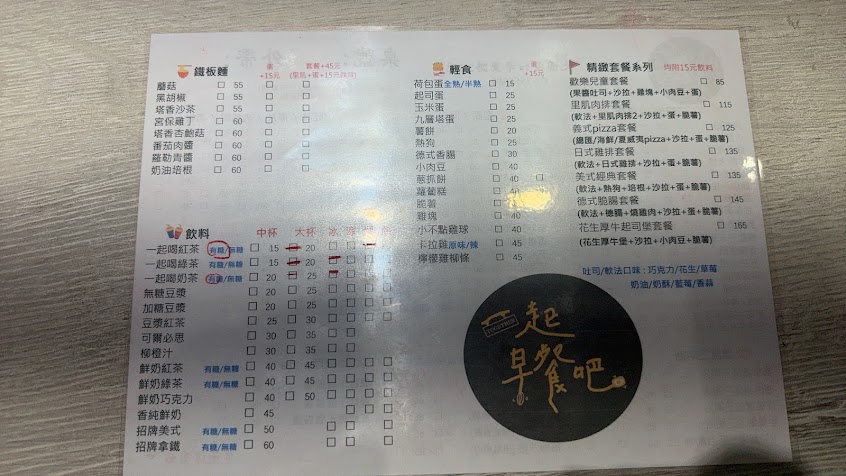 鐵板麵 蛋+15元 套餐+45元
蘑菇 55
黑胡椒 55
塔香沙茶 55
宮保雞丁 60
塔香杏鮑菇 60
番茄肉醬 60
羅勒青醬 60
奶油培根 60
飲料 中杯 大杯 冰
一起喝紅茶 有糖/無糖 15 20
一起喝綠茶 有糖/無糖 15 20
一起喝奶茶 有糖/無糖 20 25
無糖豆漿 20 25
加糖豆漿 20 25
豆漿紅茶 25 30
可爾必思 30 35
柳橙汁 30 35
鮮奶紅茶 有糖/無糖 40 45
鮮奶綠茶 有糖/無糖 40 45
鮮奶巧克力 40 50
香純鮮奶 45
招牌美式 有糖/無糖 50
招牌拿鐵 有糖/無糖 60
輕食 +15元
荷包蛋 全熟/半熟 15
起司蛋 25
玉米蛋 25
九層塔蛋 25
薯餅 20
熱狗 25
德式香腸 30
小肉豆 40
蔥抓餅 40
蘿蔔糕 40
脆薯 40
雞塊 40
小不點雞球 40
卡拉雞 原味/辣 45
檸檬雞柳條 45
精緻套餐系列 均附15元飲料
歡樂兒童套餐 85
(果醬吐司+沙拉+雞塊+小肉豆+蛋)
里肌肉排套餐 115
(軟法+里肌肉排2+沙拉+蛋+脆薯)
義式pizza套餐 125
(總匯/海鮮/夏威夷pizza+沙拉+蛋+脆薯)
日式雞排套餐 135
(軟法+日式雞排+沙拉+蛋+脆薯)
美式經典套餐 135
(軟法+熱狗+培根+沙拉+蛋+脆薯)
德式脆腸套餐 145
(軟法+德腸+燻雞肉+沙拉+蛋+脆薯)
花生厚牛起司堡套餐 165
(花生厚牛堡+沙拉+小肉豆+脆薯)
吐司/軟法口味:巧克力/花生/草莓
奶油/奶酥/藍莓/香蒜
TOGETHER
一起
早餐吧